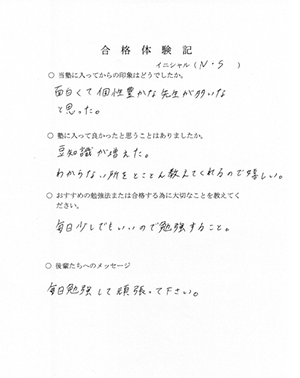 合格体験記
イニシャル（N・S　）
○ 当塾に入ってからの印象はどうでしたか。
面白くて個性豊かな先生が多いな
と思った。
○ 塾に入って良かったと思うことはありましたか。
豆知識が増えた。
わからない所をとことん教えてくれるので嬉しい。
○ おすすめの勉強法または合格する為に大切なことを教えてく
ださい。
毎日少しでもいいので勉強すること。
○ 後輩たちへのメッセージ
毎日勉強して頑張って下さい。